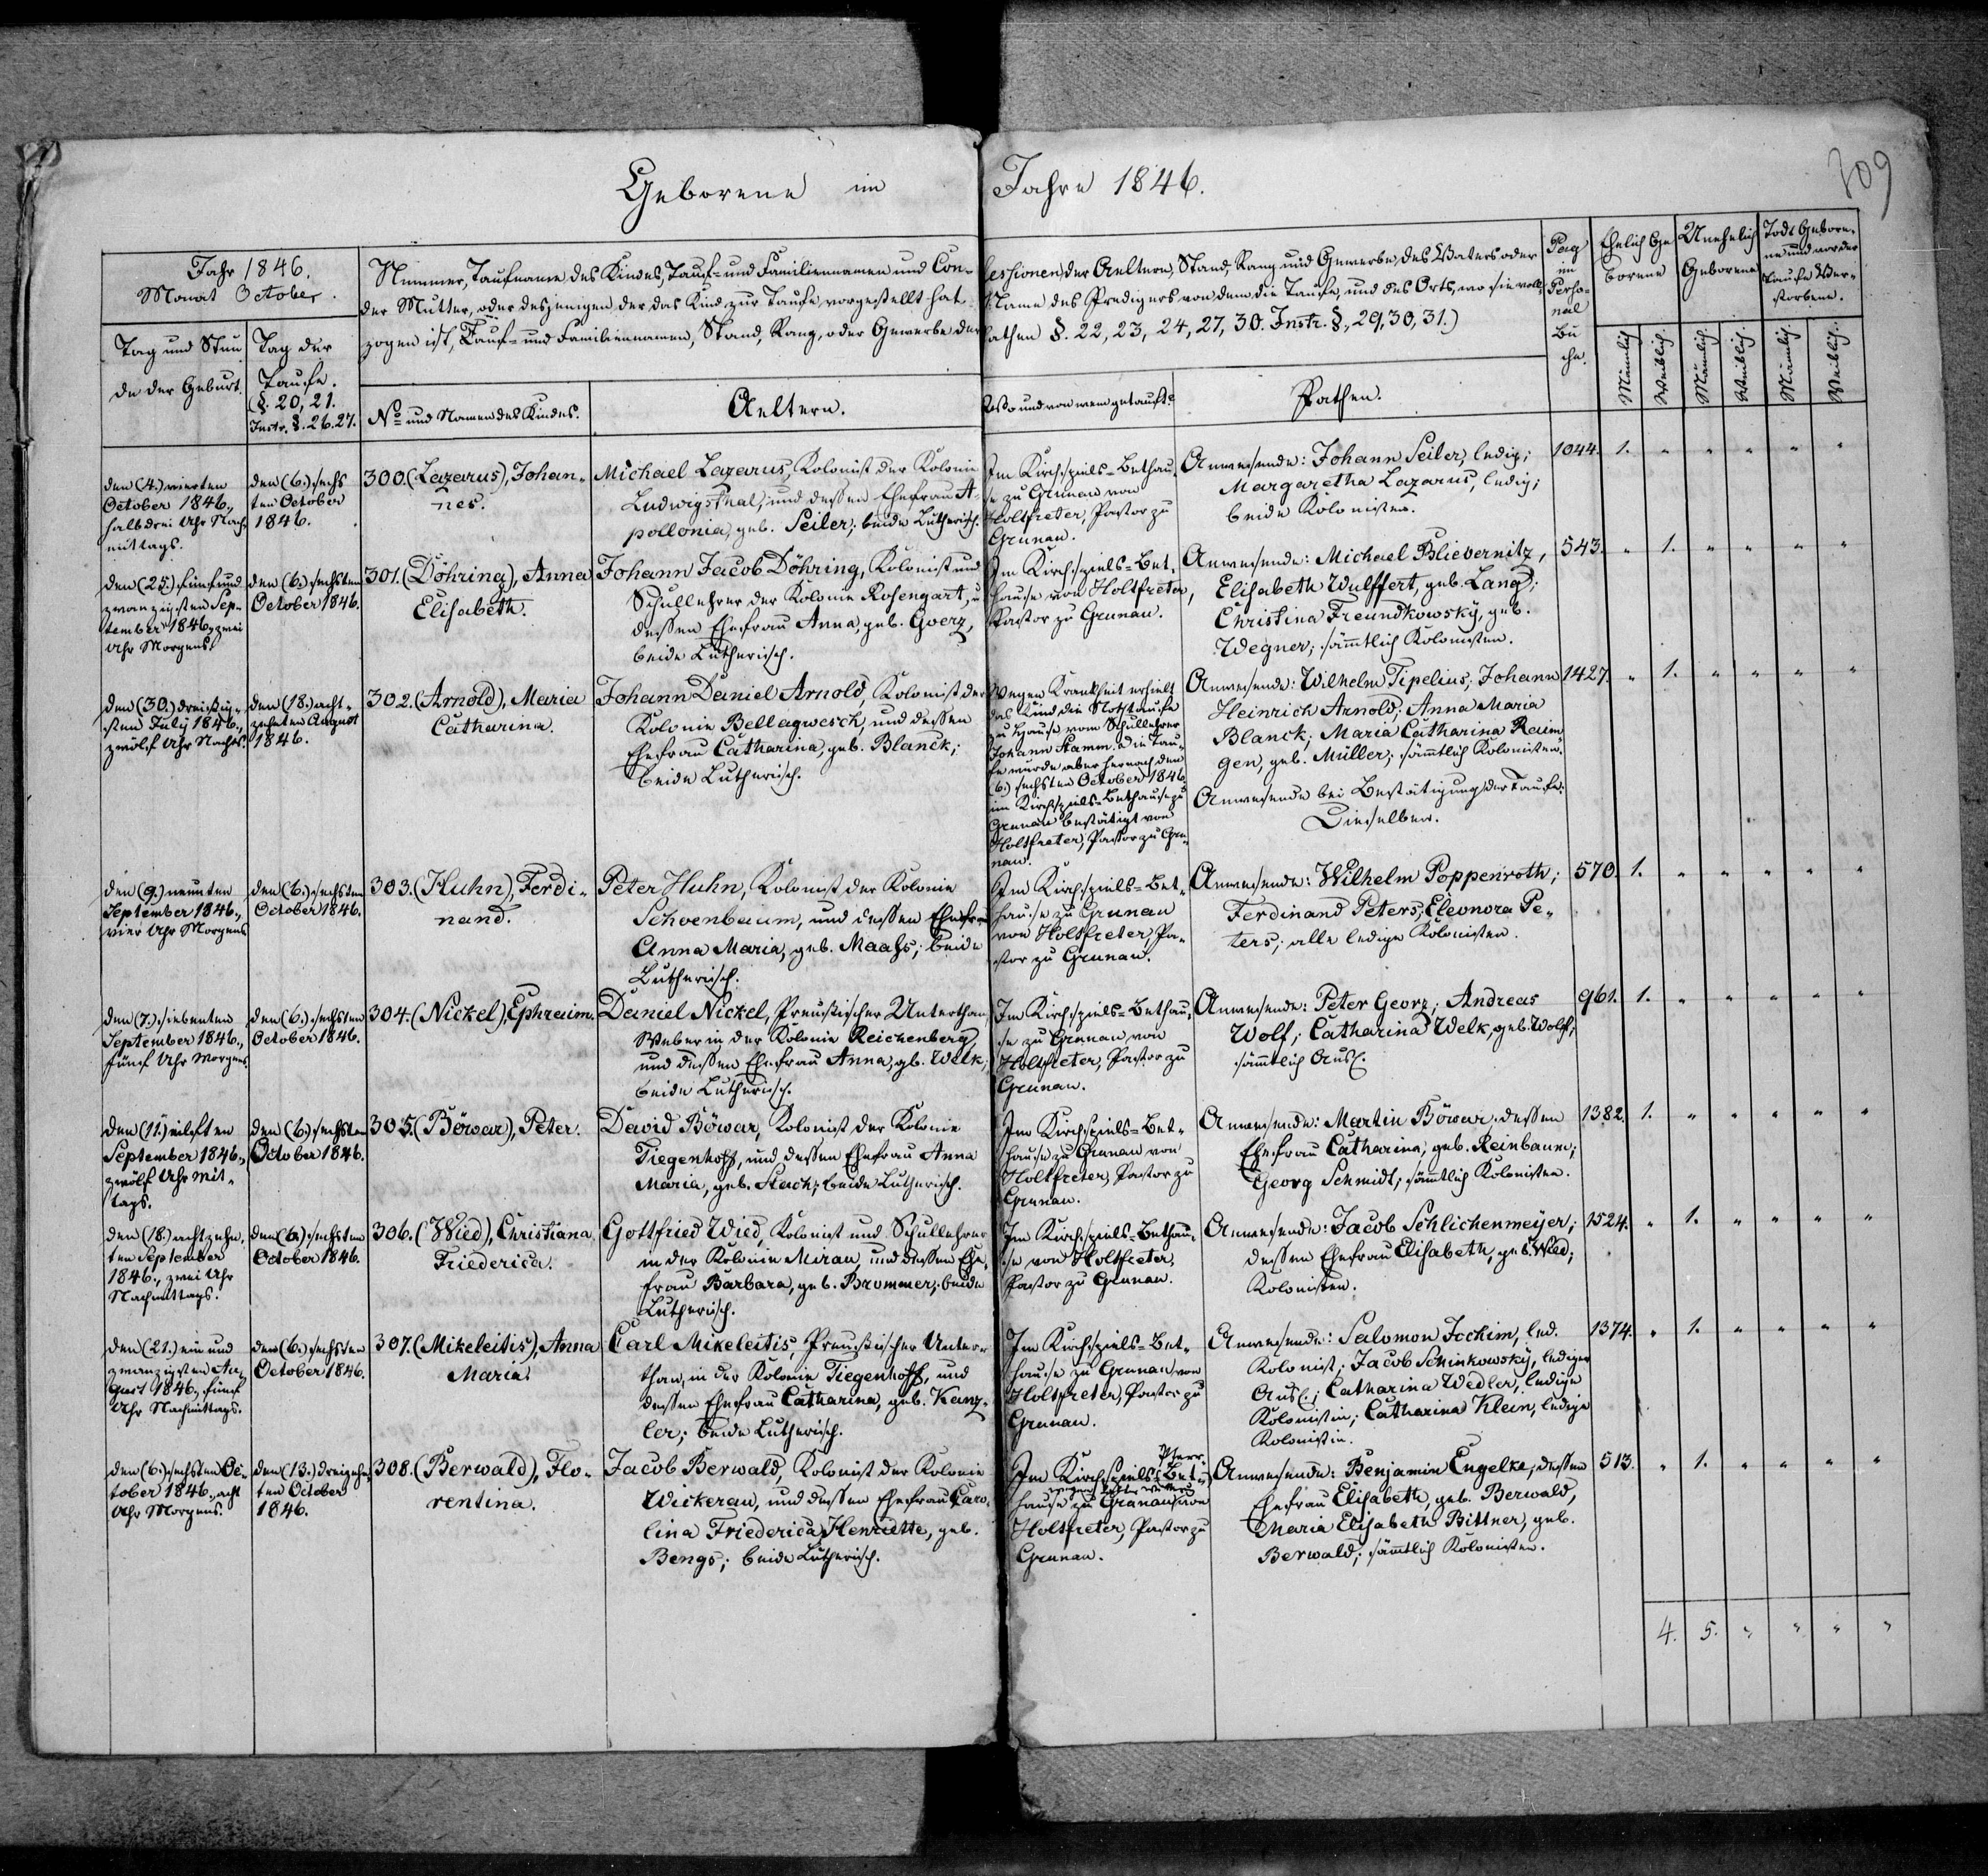 Geborene im Jahre 1846.
309
Jahr 1846.
Monat October.
Tag und Stun
de der Geburt.
Tag der
Taufe.
(§. 20, 21.
Instr. §. 26. 27.
Nummer, Taufname des Kindes, Tauf- und Familiennamen und Con-
fessionen der Aeltern, Stand, Rang und Gewerbe, des Vaters oder
der Mutter, oder desjenigen der das Kind zur Taufe vorgestellt hat
Name des Predigers von dem die Taufe, und des Orts, wo sie voll-
zogen ist, Tauf- und Familiennamen, Stand, Rang, oder Gewerbe der
Pathen §. 22, 23, 24, 27, 30. Instr. §., 29, 30, 31.)
No und Namen des Kindes.
Aeltern.
Wo und von wem getauft?
Pathen.
Pag
im
Perso-
nal
Bu
che.
Ehelich Ge
borene
Unehelich
Geborene
Todt Gebore-
ne und vor der
Taufe Ver-
storbene.
Männlich.
Weiblich.
Männlich.
Weiblich.
Männlich.
Weiblich.
den (4.) vierten
October 1846.,
halb drei Uhr Nach-
mittags.
den (6.) sechs
ten October
1846.
300. (Lazarus), Johan-
nes.
Michael Lazarus, Kolonist der Kolonie
Ludwigsthal, und dessen Ehefrau A-
pollonia, geb. Seiler; beide Lutherisch.
Im Kirchspiels-Bethau-
se zu Grunau von
Holtfreter, Pastor zu
Grunau.
Anwesende: Johann Seiler, ledig;
Margaretha Lazarus, ledig;
beide Kolonisten.
1044. 1. " " " " "
den (25.) fünf und
zwanzigsten Sep-
tember 1846., zwei
Uhr Morgens.
den (6.) sechsten
October 1846.
301. (Döhring), Anna
Elisabeth.
Johann Jacob Döhring, Kolonist und
Schullehrer der Kolonie Rosengart, u
dessen Ehefrau Anna, geb. Goerz,
beide Lutherisch.
Im Kirchspiels-Bet-
hause von Holtfreter,
Pastor zu Grunau.
Anwesende: Michael Blievernitz,
Elisabeth Wulffert, geb. Lang;
Christina Freundkowsky, geb.
Wegner; sämmtlich Kolonisten.
543. " 1. " " " "
den (30.) dreißig-
sten July 1846.,
zwölf Uhr Nachts.
den (18.) acht-
zehnten August
1846.
302. (Arnold), Maria
Catharina.
Johann Daniel Arnold, Kolonist der
Kolonie Bellagwesch, und dessen
Ehefrau Catharina, geb. Blanck;
beide Lutherisch.
Wegen Krankheit erhielt
das Kind die Nothtaufe
zu Hause vom Schullehrer
Johann Stamm. Die Tau-
fe wurde aber hernach den
(6.) sechsten October 1846.
im Kirchspiels-Bethause zu
Grunau bestätigt von
Holtfreter, Pastor zu Gru-
nau.
Anwesende: Wilhelm Tipelius; Johann
Heinrich Arnold; Anna Maria
Blanck; Maria Catharina Reim
gen, geb. Müller; sämtlich Kolonisten.
Anwesende bei Bestätigung der Taufe:
Dieselben.
1427. " 1. " " " "
den (9.) neunten
September 1846.,
vier Uhr Morgens
den (6.) sechsten
October 1846.
303. (Huhn), Ferdi-
nand.
Peter Huhn, Kolonist der Kolonie
Schoenbaum, und dessen Ehefrau
Anna Maria, geb. Maahs; beide
Lutherisch.
Im Kirchspiels-Bet-
hause zu Grunau
von Holtfreter, Pa-
stor zu Grunau.
Anwesende: Wilhelm Poppenroth;
Ferdinand Peters; Eleonora Pe-
ters; alle ledige Kolonisten.
570. 1. " " " " "
den (7.) siebenten
September 1846.,
fünf Uhr Morgens.
den (6.) sechsten
October 1846.
304. (Nickel), Ephraim.
Daniel Nickel, Preußischer Unterthan
Weber in der Kolonie Reichenberg,
und dessen Ehefrau Anna, gb. Welk;
beide Lutherisch.
Im Kirchspiels-Bethau-
se zu Grunau von
Holtfreter, Pastor zu
Grunau.
Anwesende: Peter Georg; Andreas
Wolf; Catharina Welk, geb. Wolf;
sämtlich Ausl.
961. 1. " " " " "
den (11.) eilften
September 1846.,
zwölf Uhr Mit-
tags.
den (6.) sechsten
October 1846.
305. (Böwar), Peter.
David Böwar, Kolonist der Kolonie
Tiegenhoff, und dessen Ehefrau Anna
Maria, geb. Stach; beide Lutherisch.
Im Kirchspiels-Bet-
hause zu Grunau von
Holtfreter, Pastor zu
Grunau.
Anwesende: Martin Böwar; dessen
Ehefrau Catharina, geb. Reinbaum;
Georg Schmidt; sämtlich Kolonisten.
1382. 1. " " " " "
den (18.) achtzehn-
ten September
1846., zwei Uhr
Nachmittags.
den (6.) sechsten
October 1846.
306. (Wied), Christiana
Friederica.
Gottfried Wied, Kolonist und Schullehrer
in der Kolonie Mirau, und dessen Ehe-
frau Barbara, geb. Brommer; beide
Lutherisch.
Im Kirchspiels-Bethau-
se von Holtfreter,
Pastor zu Grunau.
Anwesende: Jacob Schlichenmeyer;
dessen Ehefrau Elisabeth, geb. Wied;
Kolonisten.
1524. " 1. " " " "
den (21.) ein und
zwanzigsten Au-
gust 1846., fünf
Uhr Nachmittags.
den (6.) sechsten
October 1846.
307. (Mikeleitis), Anna
Maria.
Carl Mikeleitis, Preußischer Unter-
than, in der Kolonie Tiegenhoff, und
dessen Ehefrau Catharina, geb. Kanz-
ler; beide Lutherisch.
Im Kirchspiels-Bet-
hause zu Grunau von
Holtfreter, Pastor zu
Grunau.
Anwesende: Salomon Jochim, led.
Kolonist; Jacob Schinkowsky, lediger
Ausl.; Catharina Wedler, ledige
Kolonistin; Catharina Klein, ledige
Kolonistin.
1374. " 1. " " " "
den (6.) sechsten Oc-
tober 1846., acht
Uhr Morgens.
den (13.) dreizehn-
ten October
1846.
308. (Berwald), Flo-
rentina.
Jacob Berwald, Kolonist der Kolonie
Wickerau, und dessen Ehefrau Caro-
lina Friederica Henriette, geb.
Bengs; beide Lutherisch.
Pfarr-
Im Kirchspiels-Bet-
hause zu Grunau von
Holtfreter, Pastor zu
Grunau.
Anwesende: Benjamin Engelke; dessen
Ehefrau Elisabeth, geb. Berwald,
Maria Elisabeth Bittner, geb.
Berwald; sämtlich Kolonisten.
513. " 1. " " " "
4. 5. " " " "